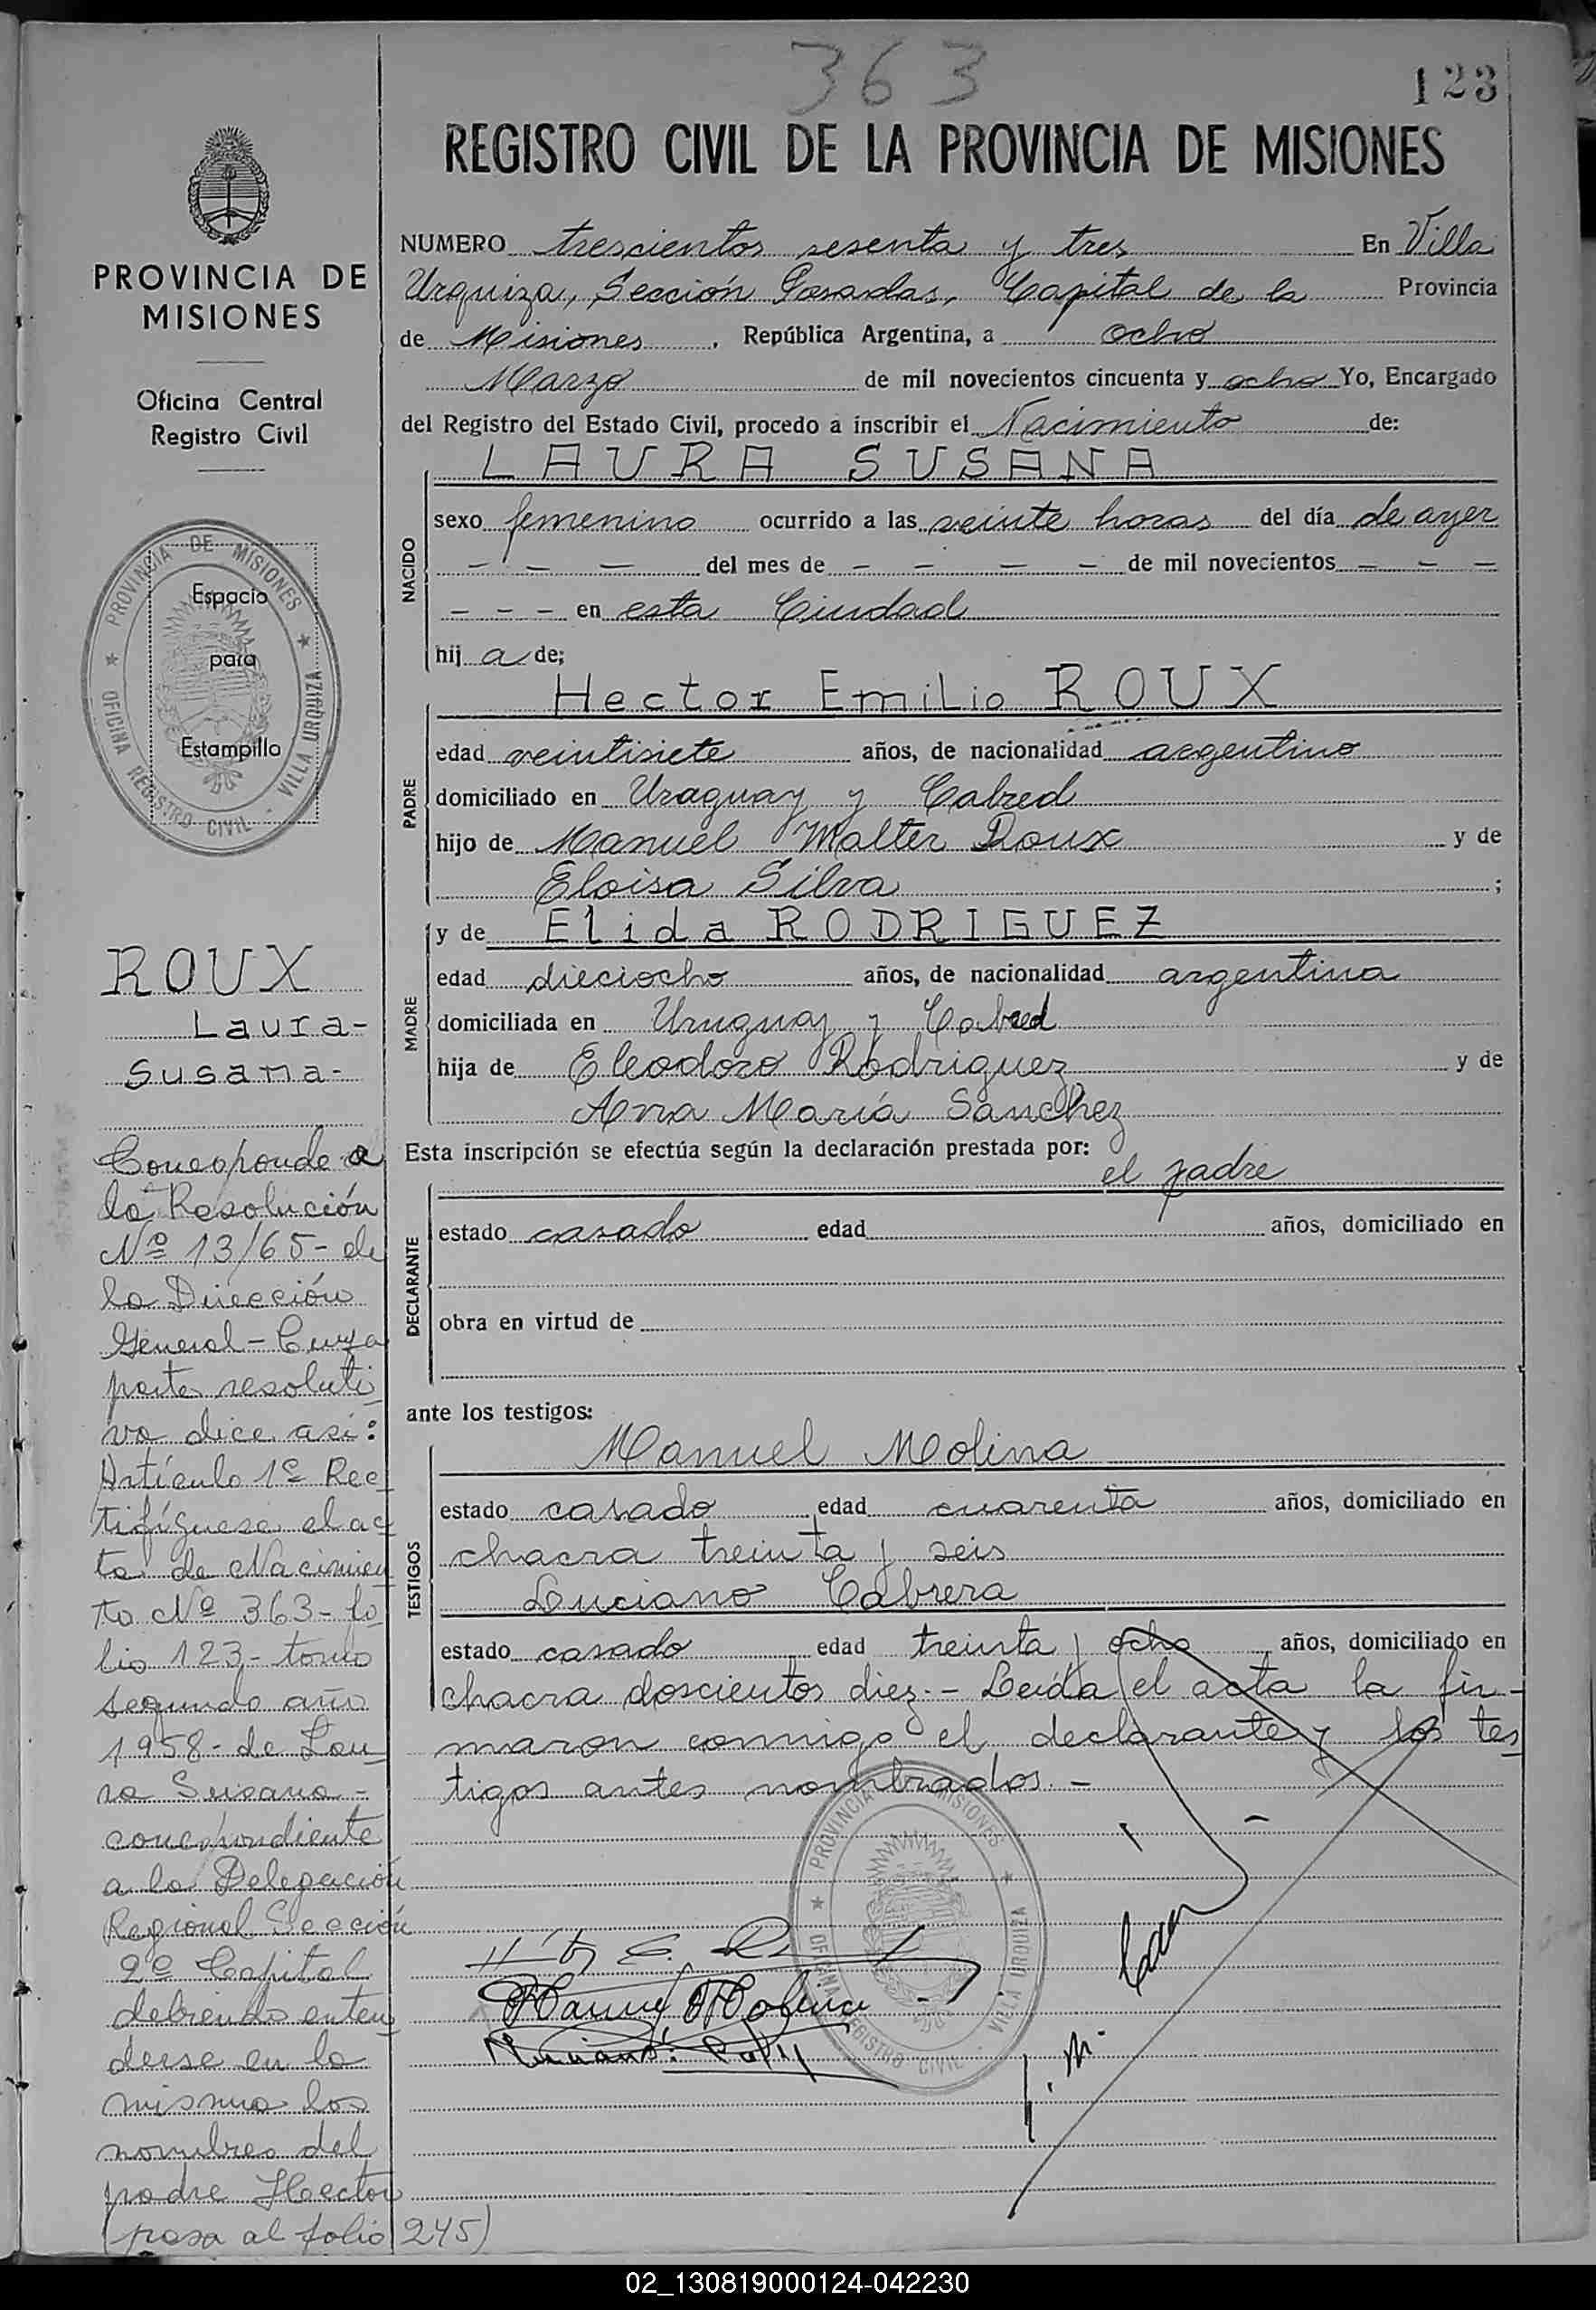 363
123
REGISTRO CIVIL DE LA PROVINCIA DE MISIONES
PROVINCIA DE
MISIONES
Oficina Central
Registro Civil
PROVINCIA DE MISIONES
OFICINA REGISTRO CIVIL - VILLA URQUIZA
Espacio
para
Estampilla
ROUX
Laura-
Susana-
Corresponde a
la Resolución
Nº 13/65- de
la Dirección
General- Cuya
parte resoluti
va dice así:
Artículo 1º Rec
tifíquese el ac
ta de Nacimien
to Nº 363- fo
lio 123- tomo
segundo año
1958- de Lau
ra Susana-
correspondiente
a la Delegación
Regional Sección
2º Capital
debiendo enten
derse en la
misma los
nombres del
padre Hector
(pasa al folio 245)
NUMERO trescientos sesenta y tres En Villa
Urquiza, Sección Posadas, Capital de la Provincia
de Misiones, República Argentina, a ocho
Marzo de mil novecientos cincuenta y ocho Yo, Encargado
del Registro del Estado Civil, procedo a inscribir el Nacimiento de:
LAURA SUSANA
NACIDO
sexo femenino ocurrido a las veinte horas del día de ayer
- - - del mes de - - - - de mil novecientos - - -
- - - en esta Ciudad
hij a de;
Hector Emilio ROUX
PADRE
edad veintisiete años, de nacionalidad argentino
domiciliado en Uraguay y Cabred
hijo de Manuel Walter Roux y de
Eloisa Silva ;
y de Elida RODRIGUEZ
MADRE
edad dieciocho años, de nacionalidad argentina
domiciliada en Uruguay y Cabred
hija de Eleodoro Rodriguez y de
Ana María Sanchez
Esta inscripción se efectúa según la declaración prestada por:
el padre
DECLARANTE
estado casado edad años, domiciliado en
obra en virtud de
ante los testigos:
Manuel Molina
TESTIGOS
estado casado edad cuarenta años, domiciliado en
chacra treinta y seis
Luciano Cabrera
estado casado edad treinta y ocho años, domiciliado en
chacra doscientos diez.- Leída el acta la fir-
maron conmigo el declarante y los tes
tigos antes nombrados.-
PROVINCIA DE MISIONES
OFICINA REGISTRO CIVIL - VILLA URQUIZA
Manuel Molina
02_130819000124-042230